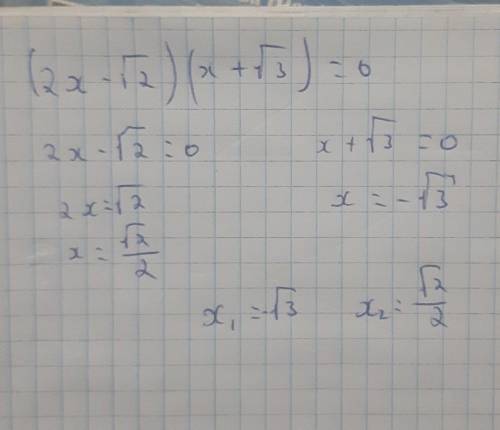 (2x - √2)(x + √3) = 0
2x - √2 = 0
2x = √2
x = √2/2
x + √3 = 0
x = -√3
x₁ = -√3 x₂ = √2/2